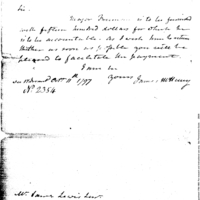 Sir.
Major        is to be furnished
with fifteen hundred dollars for which he
is to be accountable. As I wish him to
thither as soon as possible you will be
pleased to facilitate the payment.
I am &c
yours
James McHenry
Octr 11th 1797
No. 2354
Mr. Saml Lewis Senr